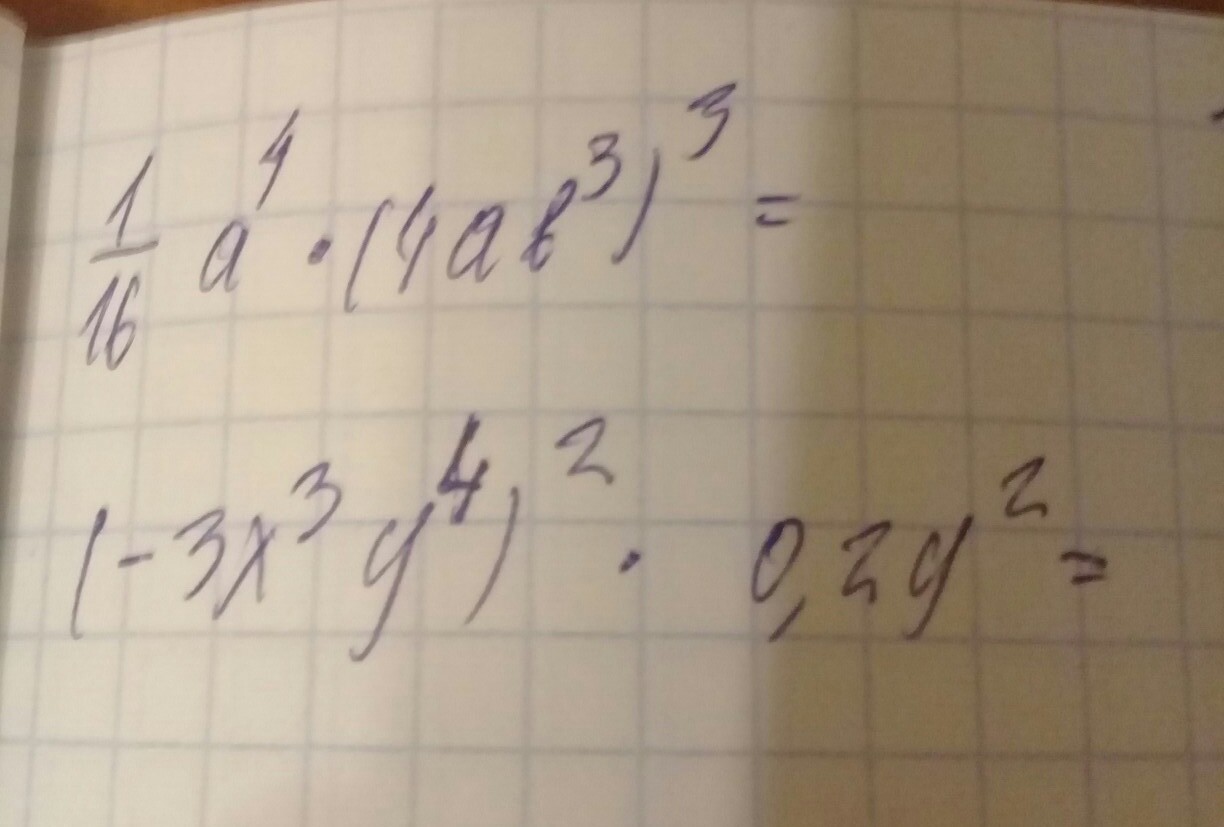 1/16 a⁴ · (4ab³)³ =
(-3x³y⁴)² · 0,2y² =